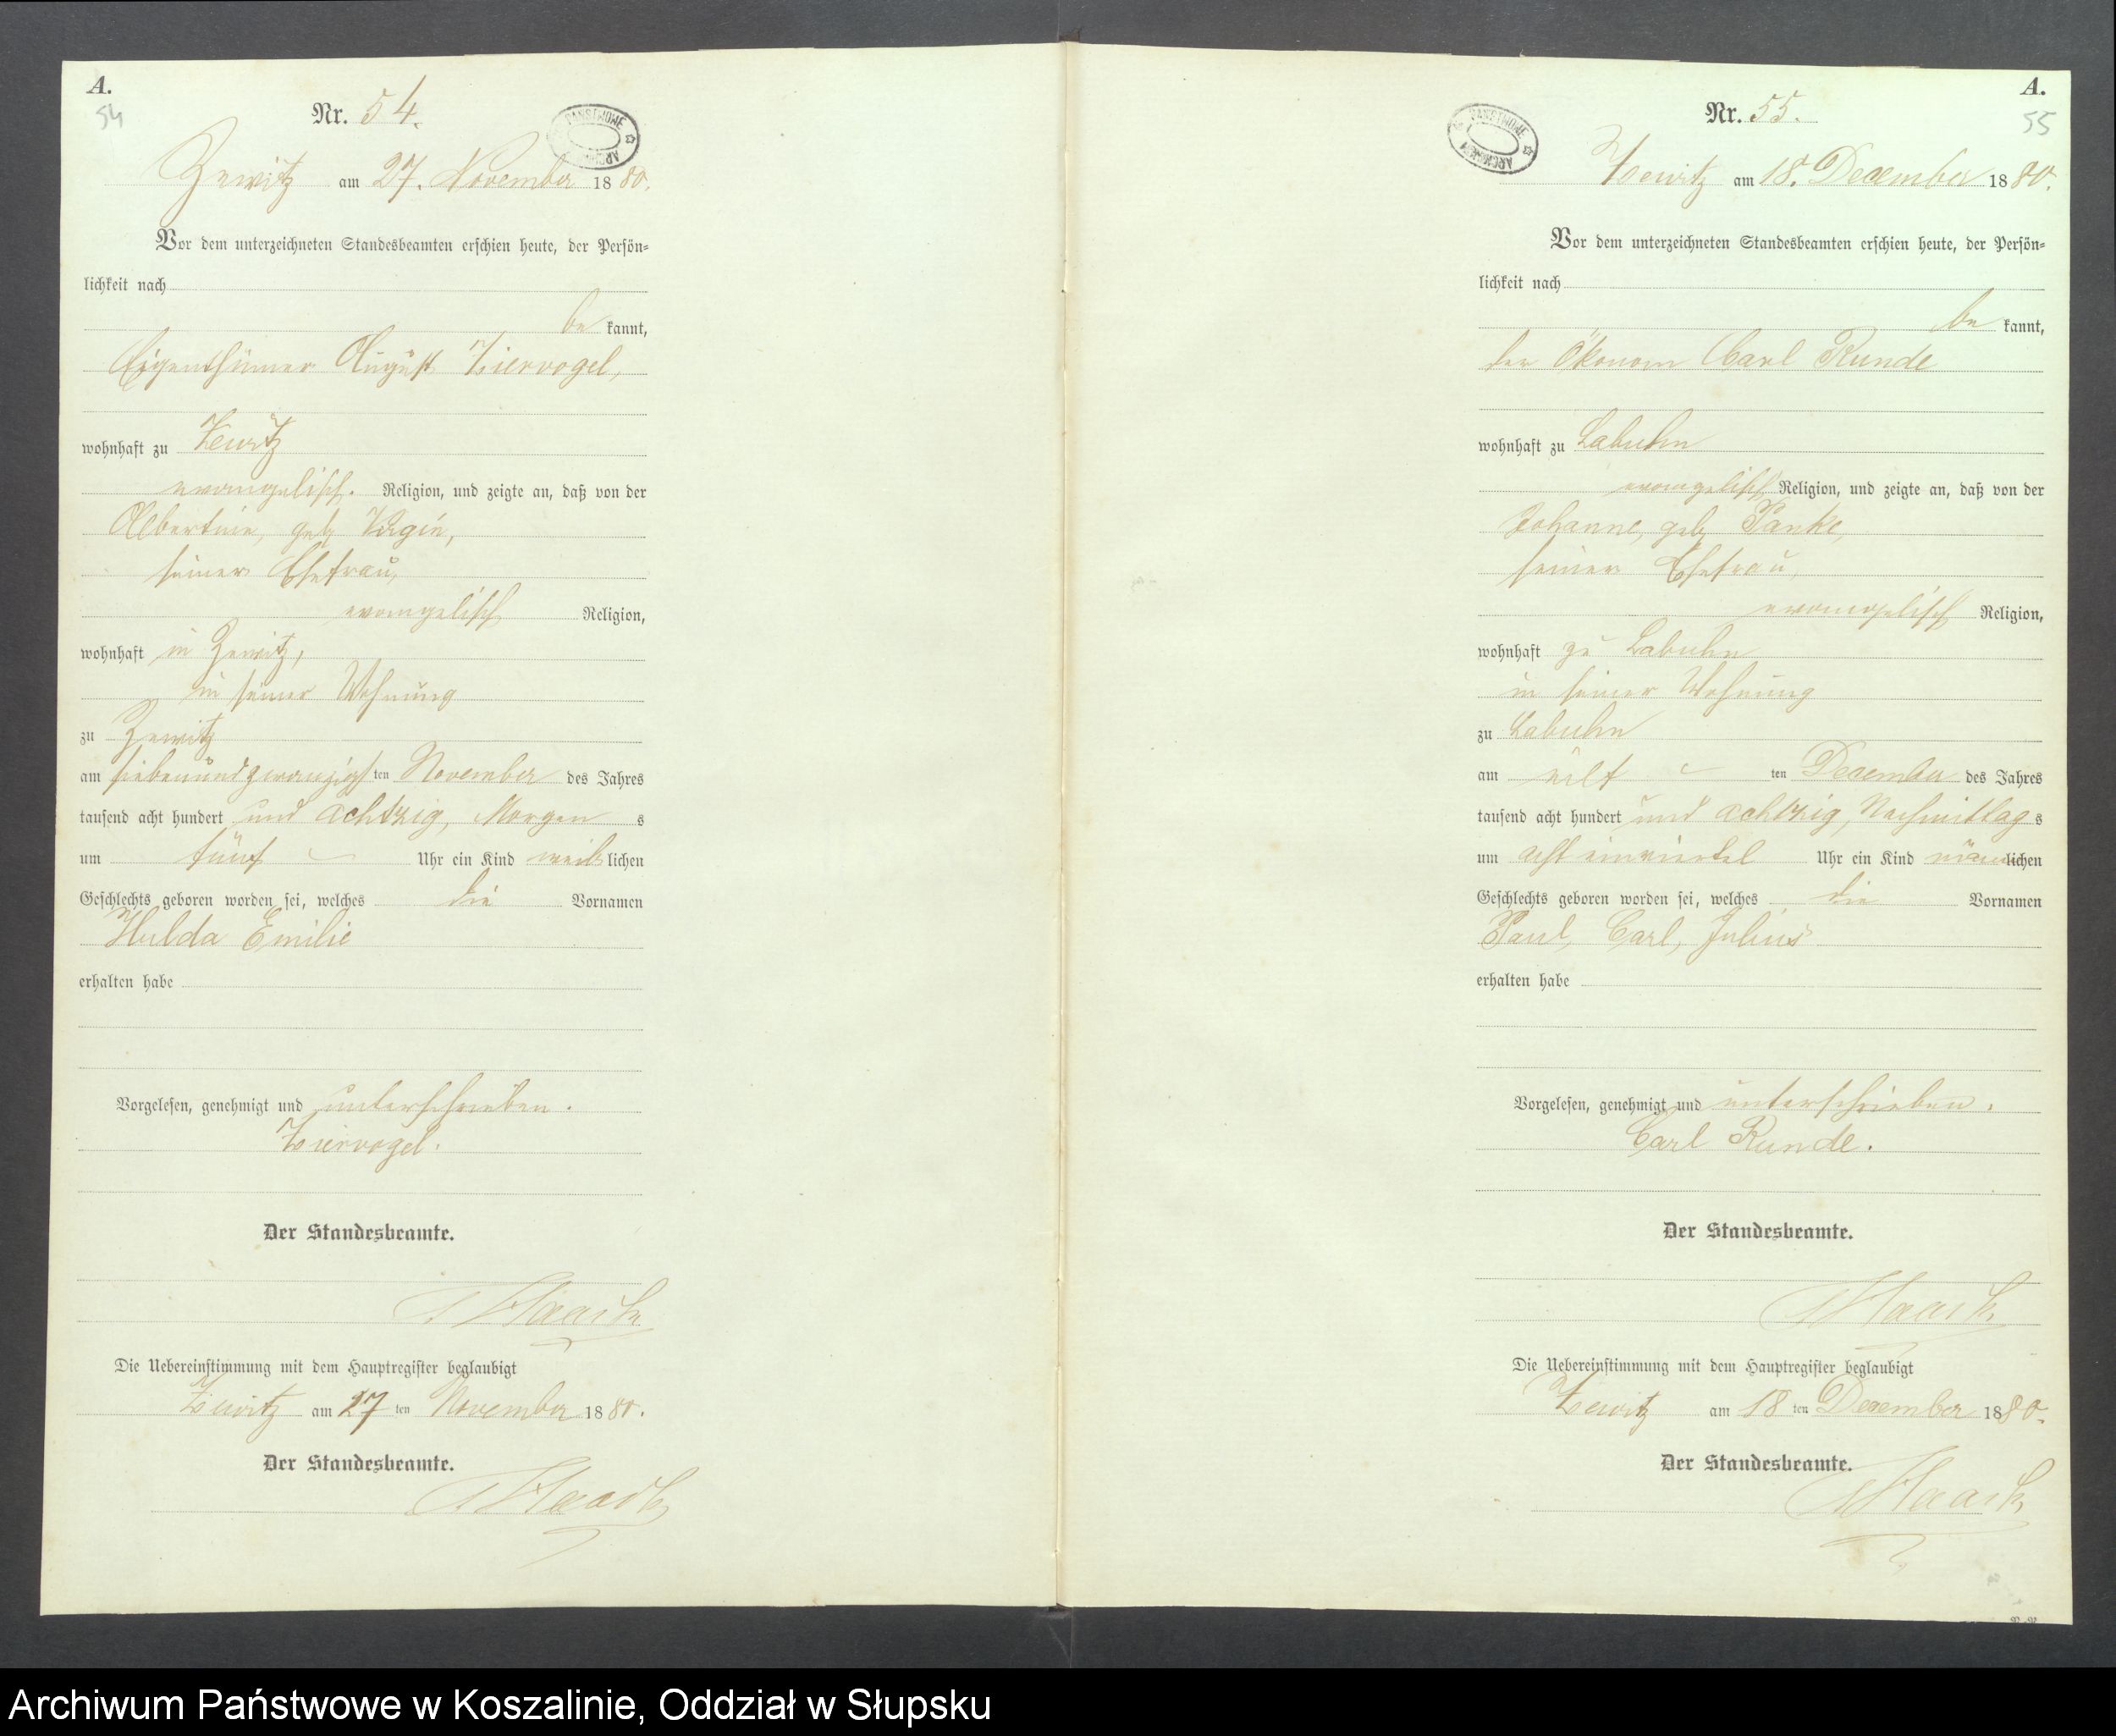 A.
54
Nr. 54.
PAŃSTWOWE
ARCHIWUM
Zewitz am 27. November 1880.
Vor dem unterzeichneten Standesbeamten erschien heute, der Persön-
lichkeit nach
be kannt,
Eigenthümer August Ziervogel,
wohnhaft zu Zewitz
evangelisch. Religion, und zeigte an, daß von der
Albertine, geb
seiner Ehefrau,
evangelisch Religion,
wohnhaft in Zewitz,
in seiner Wohnung
zu Zewitz
am siebenundzwanzigsten November des Jahres
tausend acht hundert und achtzig, Morgens
um fünf Uhr ein Kind weiblichen
Geschlechts geboren worden sei, welches die Vornamen
Hulda Emilie
erhalten habe
Vorgelesen, genehmigt und unterschrieben.
Ziervogel.
Der Standesbeamte.
Haack
Die Uebereinstimmung mit dem Hauptregister beglaubigt
Zewitz am 27ten November 1880.
Der Standesbeamte.
Haack
A.
55
Nr. 55.
PAŃSTWOWE
ARCHIWUM
Zewitz am 18. December 1880.
Vor dem unterzeichneten Standesbeamten erschien heute, der Persön-
lichkeit nach
be kannt,
der Ökonom Carl Runde
wohnhaft zu Labuhn
evangelisch Religion, und zeigte an, daß von der
Johanne, geb Panke,
seiner Ehefrau,
evangelisch Religion,
wohnhaft zu Labuhn
in seiner Wohnung
zu Labuhn
am eilf ten December des Jahres
tausend acht hundert und achtzig, Nachmittags
um acht einviertel Uhr ein Kind männlichen
Geschlechts geboren worden sei, welches die Vornamen
Paul, Carl, Julius
erhalten habe
Vorgelesen, genehmigt und unterschrieben.
Carl Runde.
Der Standesbeamte.
Haack
Die Uebereinstimmung mit dem Hauptregister beglaubigt
Zewitz am 18ten December 1880.
Der Standesbeamte.
Haack
Archiwum Państwowe w Koszalinie, Oddział w Słupsku